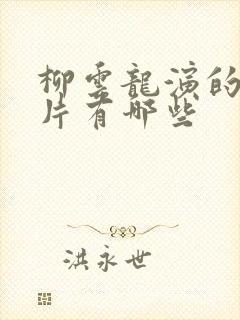 柳雲龍演的
片有哪些
洪永世